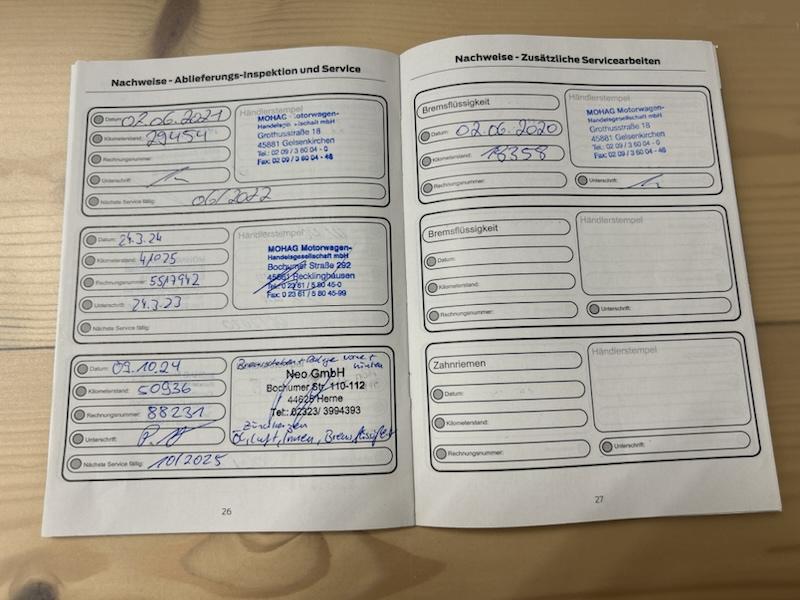 Nachweise - Ablieferungs-Inspektion und Service
Datum: 02.06.2021
Kilometerstand: 29454
Rechnungsnummer:
Unterschrift:
Nächste Service fällig: 06/2022
Händlerstempel
MOHAG Motorwagen-
Handelsgesellschaft mbH
Grothusstraße 18
45881 Gelsenkirchen
Tel.: 02 09 / 3 60 04 - 0
Fax: 02 09 / 3 60 04 - 48
Datum: 24.3.24
Kilometerstand: 41025
Rechnungsnummer: 5517942
Unterschrift: 24.3.23
Nächste Service fällig:
Händlerstempel
MOHAG Motorwagen-
Handelsgesellschaft mbH
Bochumer Straße 292
45661 Recklinghausen
Tel.: 0 23 61 / 5 80 45-0
Fax: 0 23 61 / 5 80 45-99
Datum: 09.10.24
Kilometerstand: 50936
Rechnungsnummer: 88231
Unterschrift:
Nächste Service fällig: 10/2025
Bremsscheiben + Beläge vorne +
hinten
Neo GmbH
Bochumer Str. 110-112
44625 Herne
Tel.: 02323/ 3994393
Zündkerzen
Öl, Luft, Innen, Bremsflüssigkeit
26
Nachweise - Zusätzliche Servicearbeiten
Bremsflüssigkeit
Datum: 02.06.2020
Kilometerstand: 18358
Rechnungsnummer:
Händlerstempel
MOHAG Motorwagen-
Handelsgesellschaft mbH
Grothusstraße 18
45881 Gelsenkirchen
Tel.: 02 09 / 3 60 04 - 0
Fax: 02 09 / 3 60 04 - 48
Unterschrift:
Bremsflüssigkeit
Datum:
Kilometerstand:
Rechnungsnummer:
Händlerstempel
Unterschrift:
Zahnriemen
Datum:
Kilometerstand:
Rechnungsnummer:
Händlerstempel
Unterschrift:
27